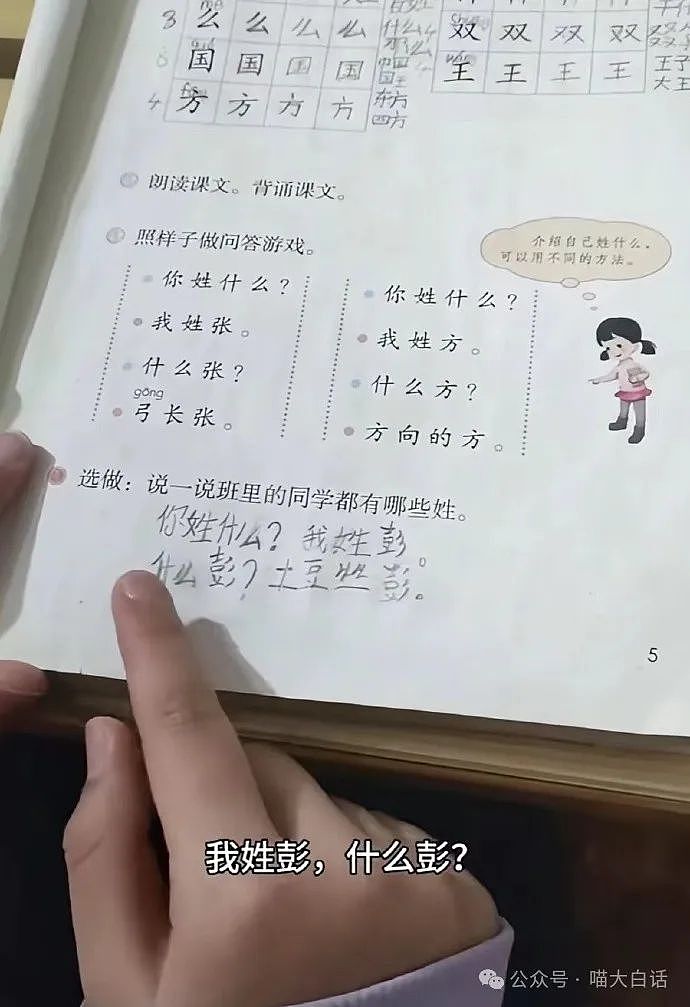 么 么 么 么 什么
双 双 双 双
国 国 国 国
王 王 王 王 王子
大王
方 方 方 方 东方
四方
朗读课文。背诵课文。
照样子做问答游戏。
介绍自己姓什么，
可以用不同的方法。
你姓什么？
我姓张。
什么张？
gōng
弓长张。
你姓什么？
我姓方。
什么方？
方向的方。
选做：说一说班里的同学都有哪些姓。
你姓什么？我姓彭。
什么彭？土豆丝彭。
5
我姓彭，什么彭？
公众号·喵大白话